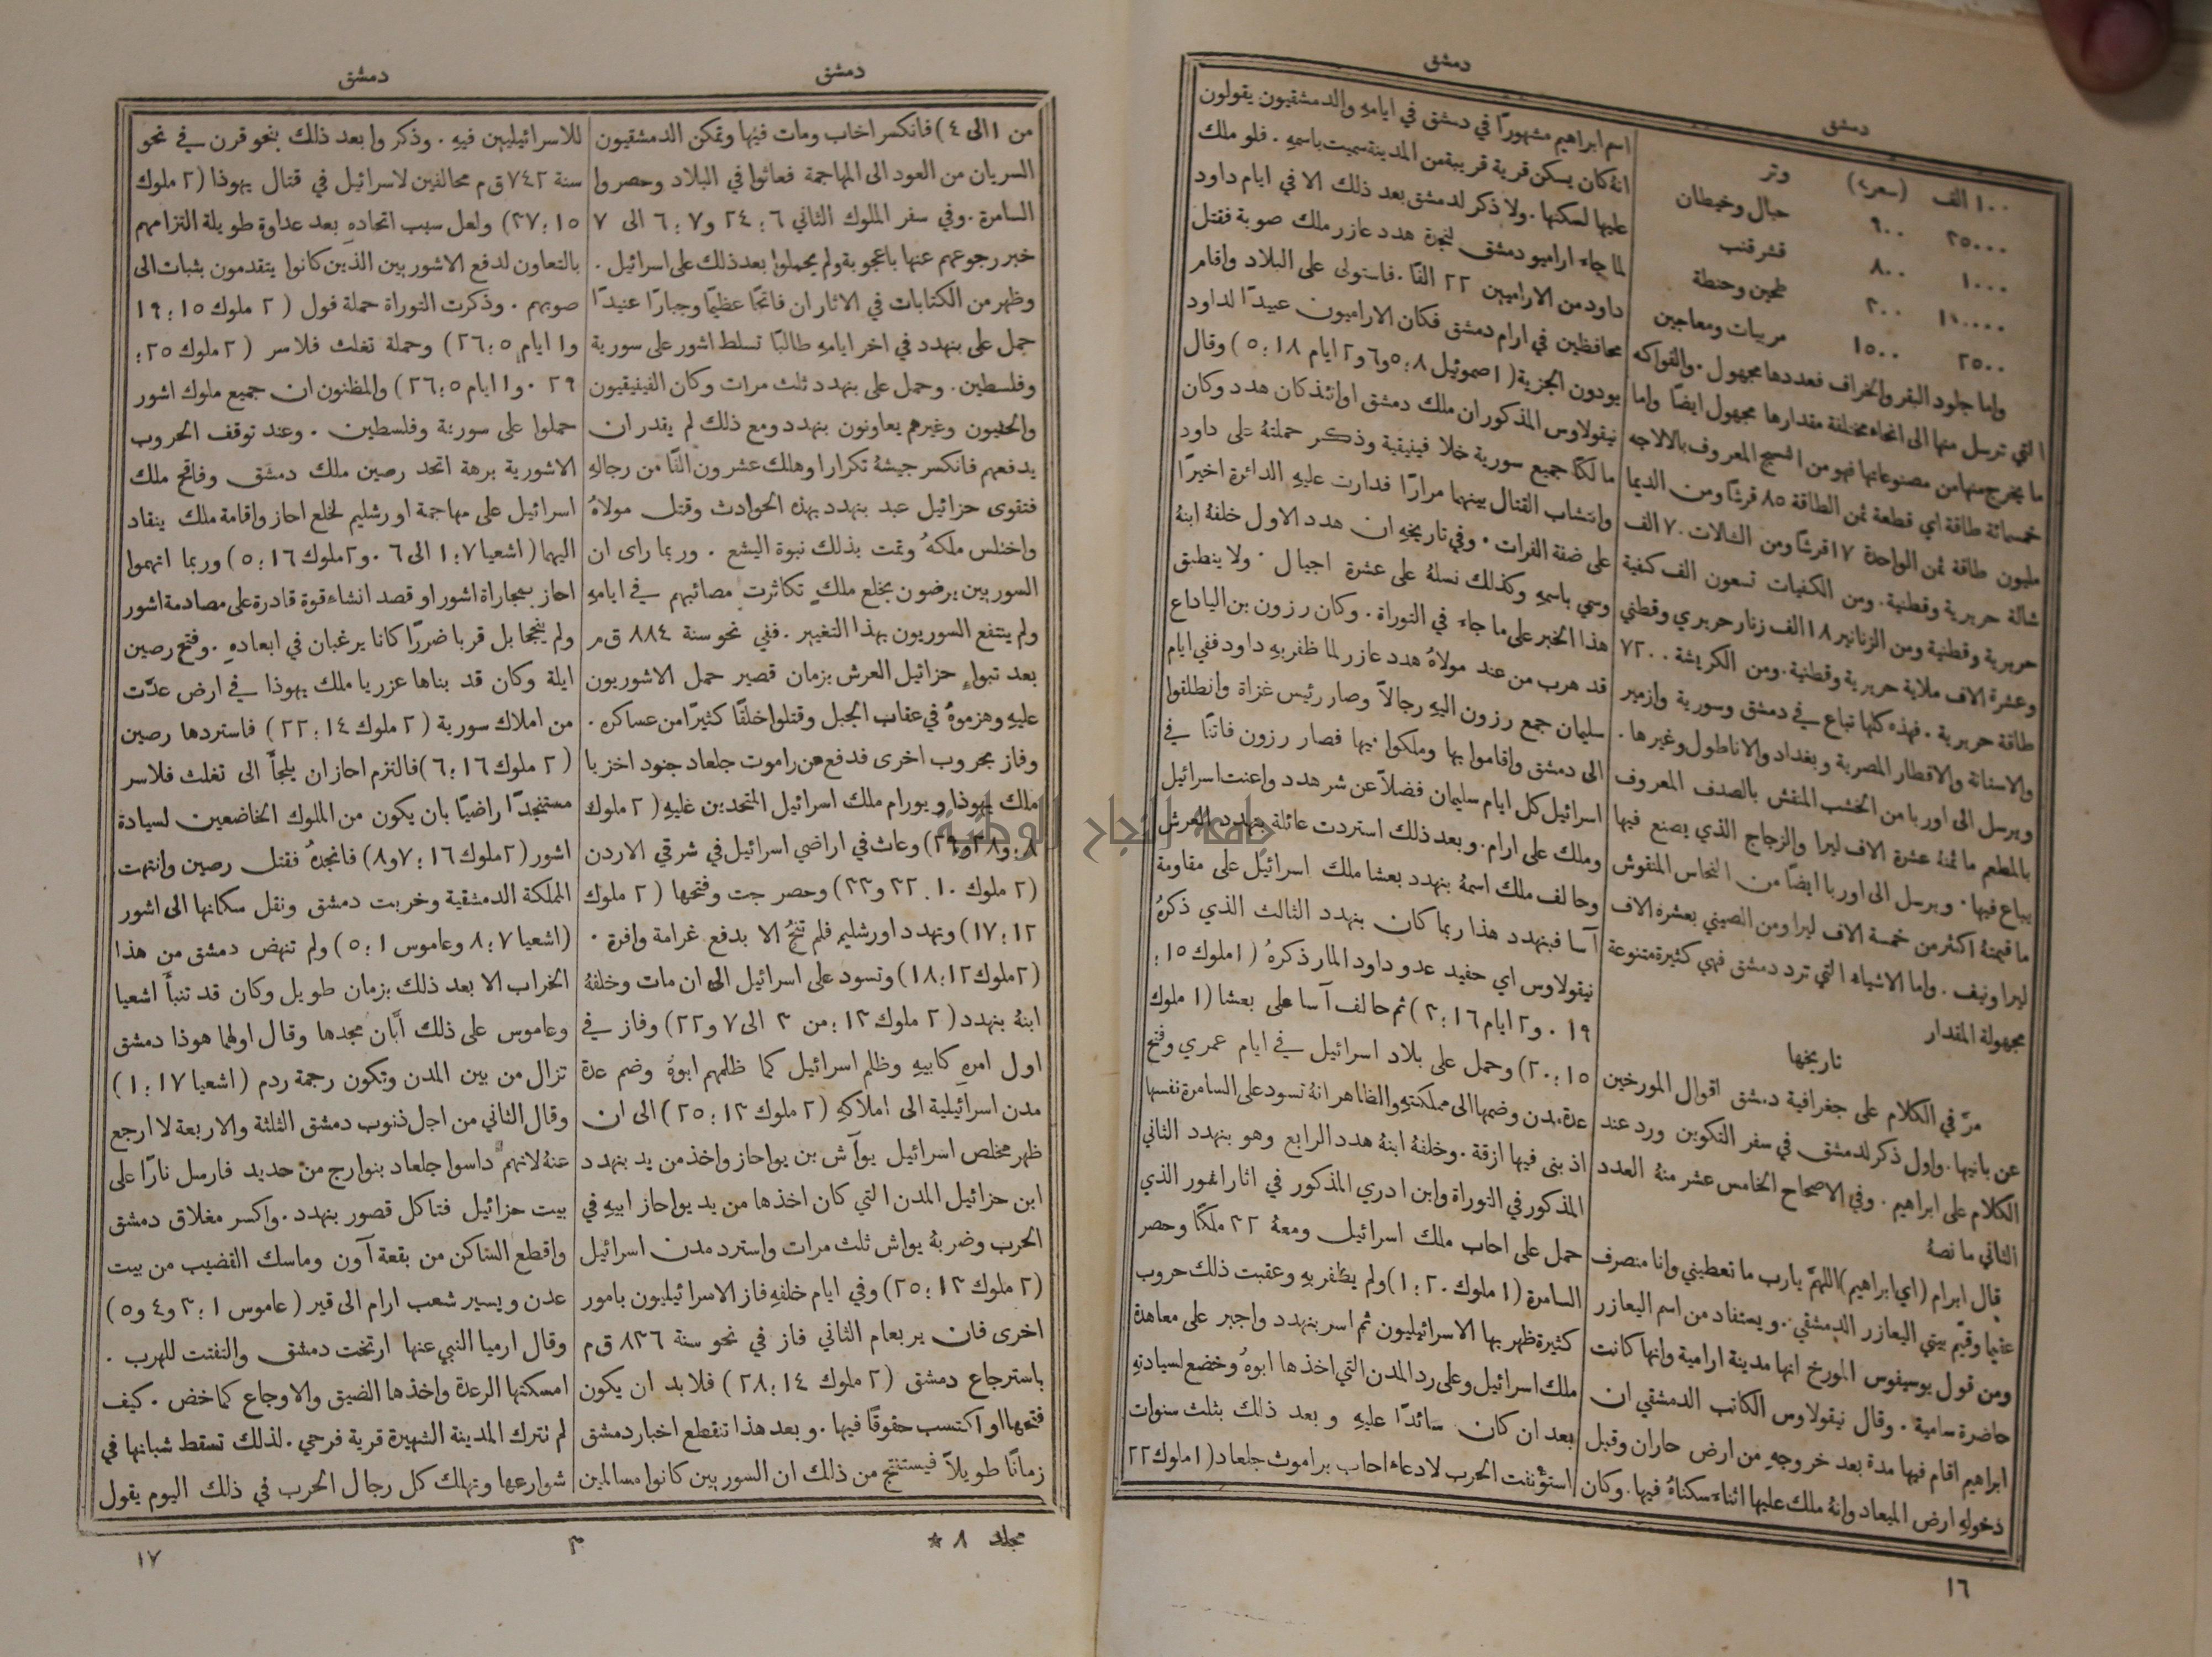 دمشق
دمشق
١٠٠ الف (سعر٤) وتر
٢٥٠٠٠ ٩٠٠ حبال وخيطان
١٠٠٠ ٨٠٠ قشر قنب
١٠٠٠٠ ٢٠٠ طحين وحنطة
٢٥٠٠ ١٥٠٠ مربيات ومعاجين
واما جلود البقر والخراف فعددها مجهول. والفواكه
التي ترسل منها الى انحاء مختلفة مقدارها مجهول ايضًا واما
ما يخرج منها من مصنوعاتها فهو من النسيج المعروف بالالاجه
خمسمائة طاقة اي قطعة ثمن الطاقة ٨٥ قرشًا ومن الديما
مليون طاقة ثمن الواحدة ١٧ قرشًا ومن الشالات ٧٠ الف
شالة حريرية وقطنية. ومن الكفيات تسعون الف كفية
حريرية وقطنية ومن الزنانير ١٨ الف زنار حريري وقطني
وعشرة الاف ملاية حريرية وقطنية. ومن الكريشة ٧٢٠٠
طاقة حريرية. فهذه كلها تباع في دمشق وسورية وازمير
والاستانة والاقطار المصرية وبغداد والاناطول وغيرها.
ويرسل الى اوربا من الخشب المنقش بالصدف المعروف
بالمطعم ما ثمنهُ عشرة الاف ليرا والزجاج الذي يصنع فيها
يباع فيها. ويرسل الى اوربا ايضًا من النحاس المنقوش
ما قيمتهُ اكثر من خمسة الاف ليرا ومن الصيني بعشرة الاف
ليرا ونيف. واما الاشياء التي ترد دمشق فهي كثيرة متنوعة
مجهولة المقدار
تاريخها
مرَّ في الكلام على جغرافية دمشق اقوال المورخين
عن بانيها. واول ذكر لدمشق في سفر التكوين ورد عند
الكلام على ابراهيم. وفي الاصحاح الخامس عشر منهُ العدد
الثاني ما نصهُ
قال ابرام (اي ابراهيم) اللهمَّ يارب ما تعطيني وانا منصرف
عقيما وقيّم بيتي اليعازر الدمشقي. ويستفاد من اسم اليعازر
ومن قول يوسيفوس المورخ انها مدينة ارامية وانها كانت
حاضرة سامية. وقال نيقولاوس الكاتب الدمشقي ان
ابراهيم اقام فيها مدة بعد خروجهِ من ارض حاران وقبل
دخولهِ ارض الميعاد وانهُ ملك عليها اثناء سكناهُ فيها. وكان
اسم ابراهيم مشهورًا في دمشق في ايامهِ والدمشقيون يقولون
انهُ كان يسكن قرية قريبة من المدينة سميت باسمهِ. فلو ملك
عليها لسكنها. ولا ذكر لدمشق بعد ذلك الا في ايام داود
لما جاء اراميو دمشق لنجدة هدد عازر ملك صوبة فقتل
داود من الاراميين ٢٢ الفًا. فاستولى على البلاد واقام
محافظين في ارام دمشق فكان الاراميون عبيدًا لداود
يودون الجزية (١ صموئيل ٨: ٥ و٦ و٢ ايام ١٨: ٥) وقال
نيقولاوس المذكور ان ملك دمشق اوانئذ كان هدد وكان
مالكًا جميع سورية خلا فينيقية وذكر حملتهُ على داود
وانتشاب القتال بينهما مرارًا فدارت عليهِ الدائرة اخيرًا
على ضفة الفرات. وفي تاريخهِ ان هدد الاول خلفهُ ابنهُ
وسمي باسمهِ وكذلك نسلهُ على عشرة اجيال. ولا ينطبق
هذا الخبر على ما جاء في التوراة. وكان رزون بن الياداع
قد هرب من عند مولاهُ هدد عازر لما ظفر بهِ داود ففي ايام
سليمان جمع رزون اليهِ رجالاً وصار رئيس غزاة وانطلقوا
الى دمشق واقاموا بها وملكوا فيها فصار رزون فاتنًا في
اسرائيل كل ايام سليمان فضلاً عن شر هدد واعنت اسرائيل
وملك على ارام. وبعد ذلك استردت عائلة هدد العرش
وحالف ملك اسمهُ بنهدد بعشا ملك اسرائيل على مقاومة
آسا فبنهدد هذا ربما كان بنهدد الثالث الذي ذكرهُ
نيقولاوس اي حفيد عدو داود المار ذكرهُ (١ ملوك ١٥:
١٩. و٢ ايام ١٦: ٢) ثم حالف آسا على بعشا (١ ملوك
١٥: ٢٠) وحمل على بلاد اسرائيل في ايام عمري وفتح
عدة مدن وضمها الى مملكتهِ والظاهر انهُ تسود على السامرة نفسها
اذ بنى فيها ازقة. وخلفهُ ابنهُ هدد الرابع وهو بنهدد الثاني
المذكور في التوراة وابن ادري المذكور في اثار اشور الذي
حمل على احاب ملك اسرائيل ومعهُ ٣٢ ملكًا وحصر
السامرة (١ ملوك ٢٠: ١) ولم يظفر بهِ وعقبت ذلك حروب
كثيرة ظهر بها الاسرائيليون ثم اسر بنهدد واجبر على معاهدة
ملك اسرائيل وعلى رد المدن التي اخذها ابوهُ وخضع لسيادتهِ
بعد ان كان سائدًا عليهِ وبعد ذلك بثلث سنوات
استؤنفت الحرب لادعاء احاب براموث جلعاد (١ ملوك ٢٢
١٦
دمشق
دمشق
من ١ الى ٤) فانكسر اخاب ومات فيها وتمكن الدمشقيون
السريان من العود الى المهاجمة فعاثوا في البلاد وحصروا
السامرة. وفي سفر الملوك الثاني ٦: ٢٤ و٧: ٦ الى ٧
خبر رجوعهم عنها باعجوبة ولم يحملوا بعد ذلك على اسرائيل.
وظهر من الكتابات في الاثار ان فاتحًا عظيمًا وجبارًا عنيدًا
حمل على بنهدد في اخر ايامهِ طالبًا تسلط اشور على سورية
وفلسطين. وحمل على بنهدد ثلث مرات وكان الفينيقيون
والحثيون وغيرهم يعاونون بنهدد ومع ذلك لم يقدر ان
يدفعهم فانكسر جيشهُ تكرارا وهلك عشرون الفًا من رجالهِ
فتقوى حزائيل عبد بنهدد بهذه الحوادث وقتل مولاهُ
واختلس ملكهُ وتمت بذلك نبوة اليشع. وربما راى ان
السوريين يرضون بخلع ملكٍ تكاثرت مصائبهم في ايامهِ
ولم ينتفع السوريون بهذا التغيير. ففي نحو سنة ٨٨٤ ق م
بعد تبواءِ حزائيل العرش بزمان قصير حمل الاشوريون
عليهِ وهزموهُ في عقاب الجبل وقتلوا خلقًا كثيرًا من عساكره.
وفاز بحروب اخرى فدفع عن راموت جلعاد جنود اخزيا
ملك يهوذا ويورام ملك اسرائيل المتحدين عليهِ (٢ ملوك
٨: ٢٨ و٢٩) وعاث في اراضي اسرائيل في شرقي الاردن
(٢ ملوك ١٠: ٣٢ و٣٣) وحصر جت وفتحها (٢ ملوك
١٢: ١٧) وتهدد اورشليم فلم تنجُ الا بدفع غرامة وافرة.
(٢ ملوك ١٢: ١٨) وتسود على اسرائيل الى ان مات وخلفهُ
ابنهُ بنهدد (٢ ملوك ١٣: من ٣ الى ٧ و٢٢) وفاز في
اول امرهِ كابيهِ وظلم اسرائيل كما ظلمهم ابوهُ وضم عدة
مدن اسرائيلية الى املاكهِ (٢ ملوك ١٣: ٢٥) الى ان
ظهر مخلص اسرائيل يوآش بن يواحاز واخذ من يد بنهدد
ابن حزائيل المدن التي كان اخذها من يد يواحاز ابيهِ في
الحرب وضربهُ يواش ثلث مرات واسترد مدن اسرائيل
(٢ ملوك ١٣: ٢٥) وفي ايام خلفهِ فاز الاسرائيليون بامور
اخرى فان يربعام الثاني فاز في نحو سنة ٨٣٦ ق م
باسترجاع دمشق (٢ ملوك ١٤: ٢٨) فلا بد ان يكون
فتحها او اكتسب حقوقًا فيها. وبعد هذا تنقطع اخبار دمشق
زمانًا طويلاً فيستنتج من ذلك ان السوريين كانوا مسالمين
للاسرائيليين فيهِ. وذكروا بعد ذلك بنحو قرن في نحو
سنة ٧٤٢ ق م محالفين لاسرائيل في قتال يهوذا (٢ ملوك
١٥: ٣٧) ولعل سبب اتحادهِ بعد عداوة طويلة التزامهم
بالتعاون لدفع الاشوريين الذين كانوا يتقدمون بثبات الى
صوبهم. وذكرت التوراة حملة فول (٢ ملوك ١٥: ١٩
و١ ايام ٥: ٢٦) وحملة تغلث فلاسر (٢ ملوك ٢٥:
٢٩. و١ ايام ٥: ٢٦) والمظنون ان جميع ملوك اشور
حملوا على سورية وفلسطين. وعند توقف الحروب
الاشورية برهة اتحد رصين ملك دمشق وفاقح ملك
اسرائيل على مهاجمة اورشليم لخلع احاز واقامة ملك ينقاد
اليهما (اشعيا ٧: ١ الى ٦. و٢ ملوك ١٦: ٥) وربما اتهموا
احاز بمجاراة اشور او قصد انشاء قوة قادرة على مصادمة اشور
ولم ينجحا بل قربا ضررًا كانا يرغبان في ابعادهِ. وفتح رصين
ايلة وكان قد بناها عزريا ملك يهوذا في ارض عدّت
من املاك سورية (٢ ملوك ١٤: ٢٢) فاستردها رصين
(٢ ملوك ١٦: ٦) فالتزم احاز ان يلجأَ الى تغلث فلاسر
مستنجدًا راضيًا بان يكون من الملوك الخاضعين لسيادة
اشور (٢ ملوك ١٦: ٧ و٨) فانجدهُ فقتل رصين وانتهت
المملكة الدمشقية وخربت دمشق ونقل سكانها الى اشور
(اشعيا ٧: ٨ وعاموس ١: ٥) ولم تنهض دمشق من هذا
الخراب الا بعد ذلك بزمان طويل وكان قد تنبأَ اشعيا
وعاموس على ذلك أَبان مجدها وقال اولهما هوذا دمشق
تزال من بين المدن وتكون رجمة ردم (اشعيا ١٧: ١)
وقال الثاني من اجل ذنوب دمشق الثلثة والاربعة لا ارجع
عنهُ لانهم داسوا جلعاد بنوارج من حديد فارسل نارًا على
بيت حزائيل فتاكل قصور بنهدد. واكسر مغلاق دمشق
واقطع الساكن من بقعة آون وماسك القضيب من بيت
عدن ويسير شعب ارام الى قير (عاموس ١: ٣ و٤ و٥)
وقال ارميا النبي عنها ارتخت دمشق والتفتت للهرب.
امسكتها الرعدة واخذها الضيق والاوجاع كماخض. كيف
لم تترك المدينة الشهيرة قرية فرحي. لذلك تسقط شبانها في
شوارعها وتهلك كل رجال الحرب في ذلك اليوم يقول
مجلد ٨ *
٣
١٧
جامعة النجاح الوطنية